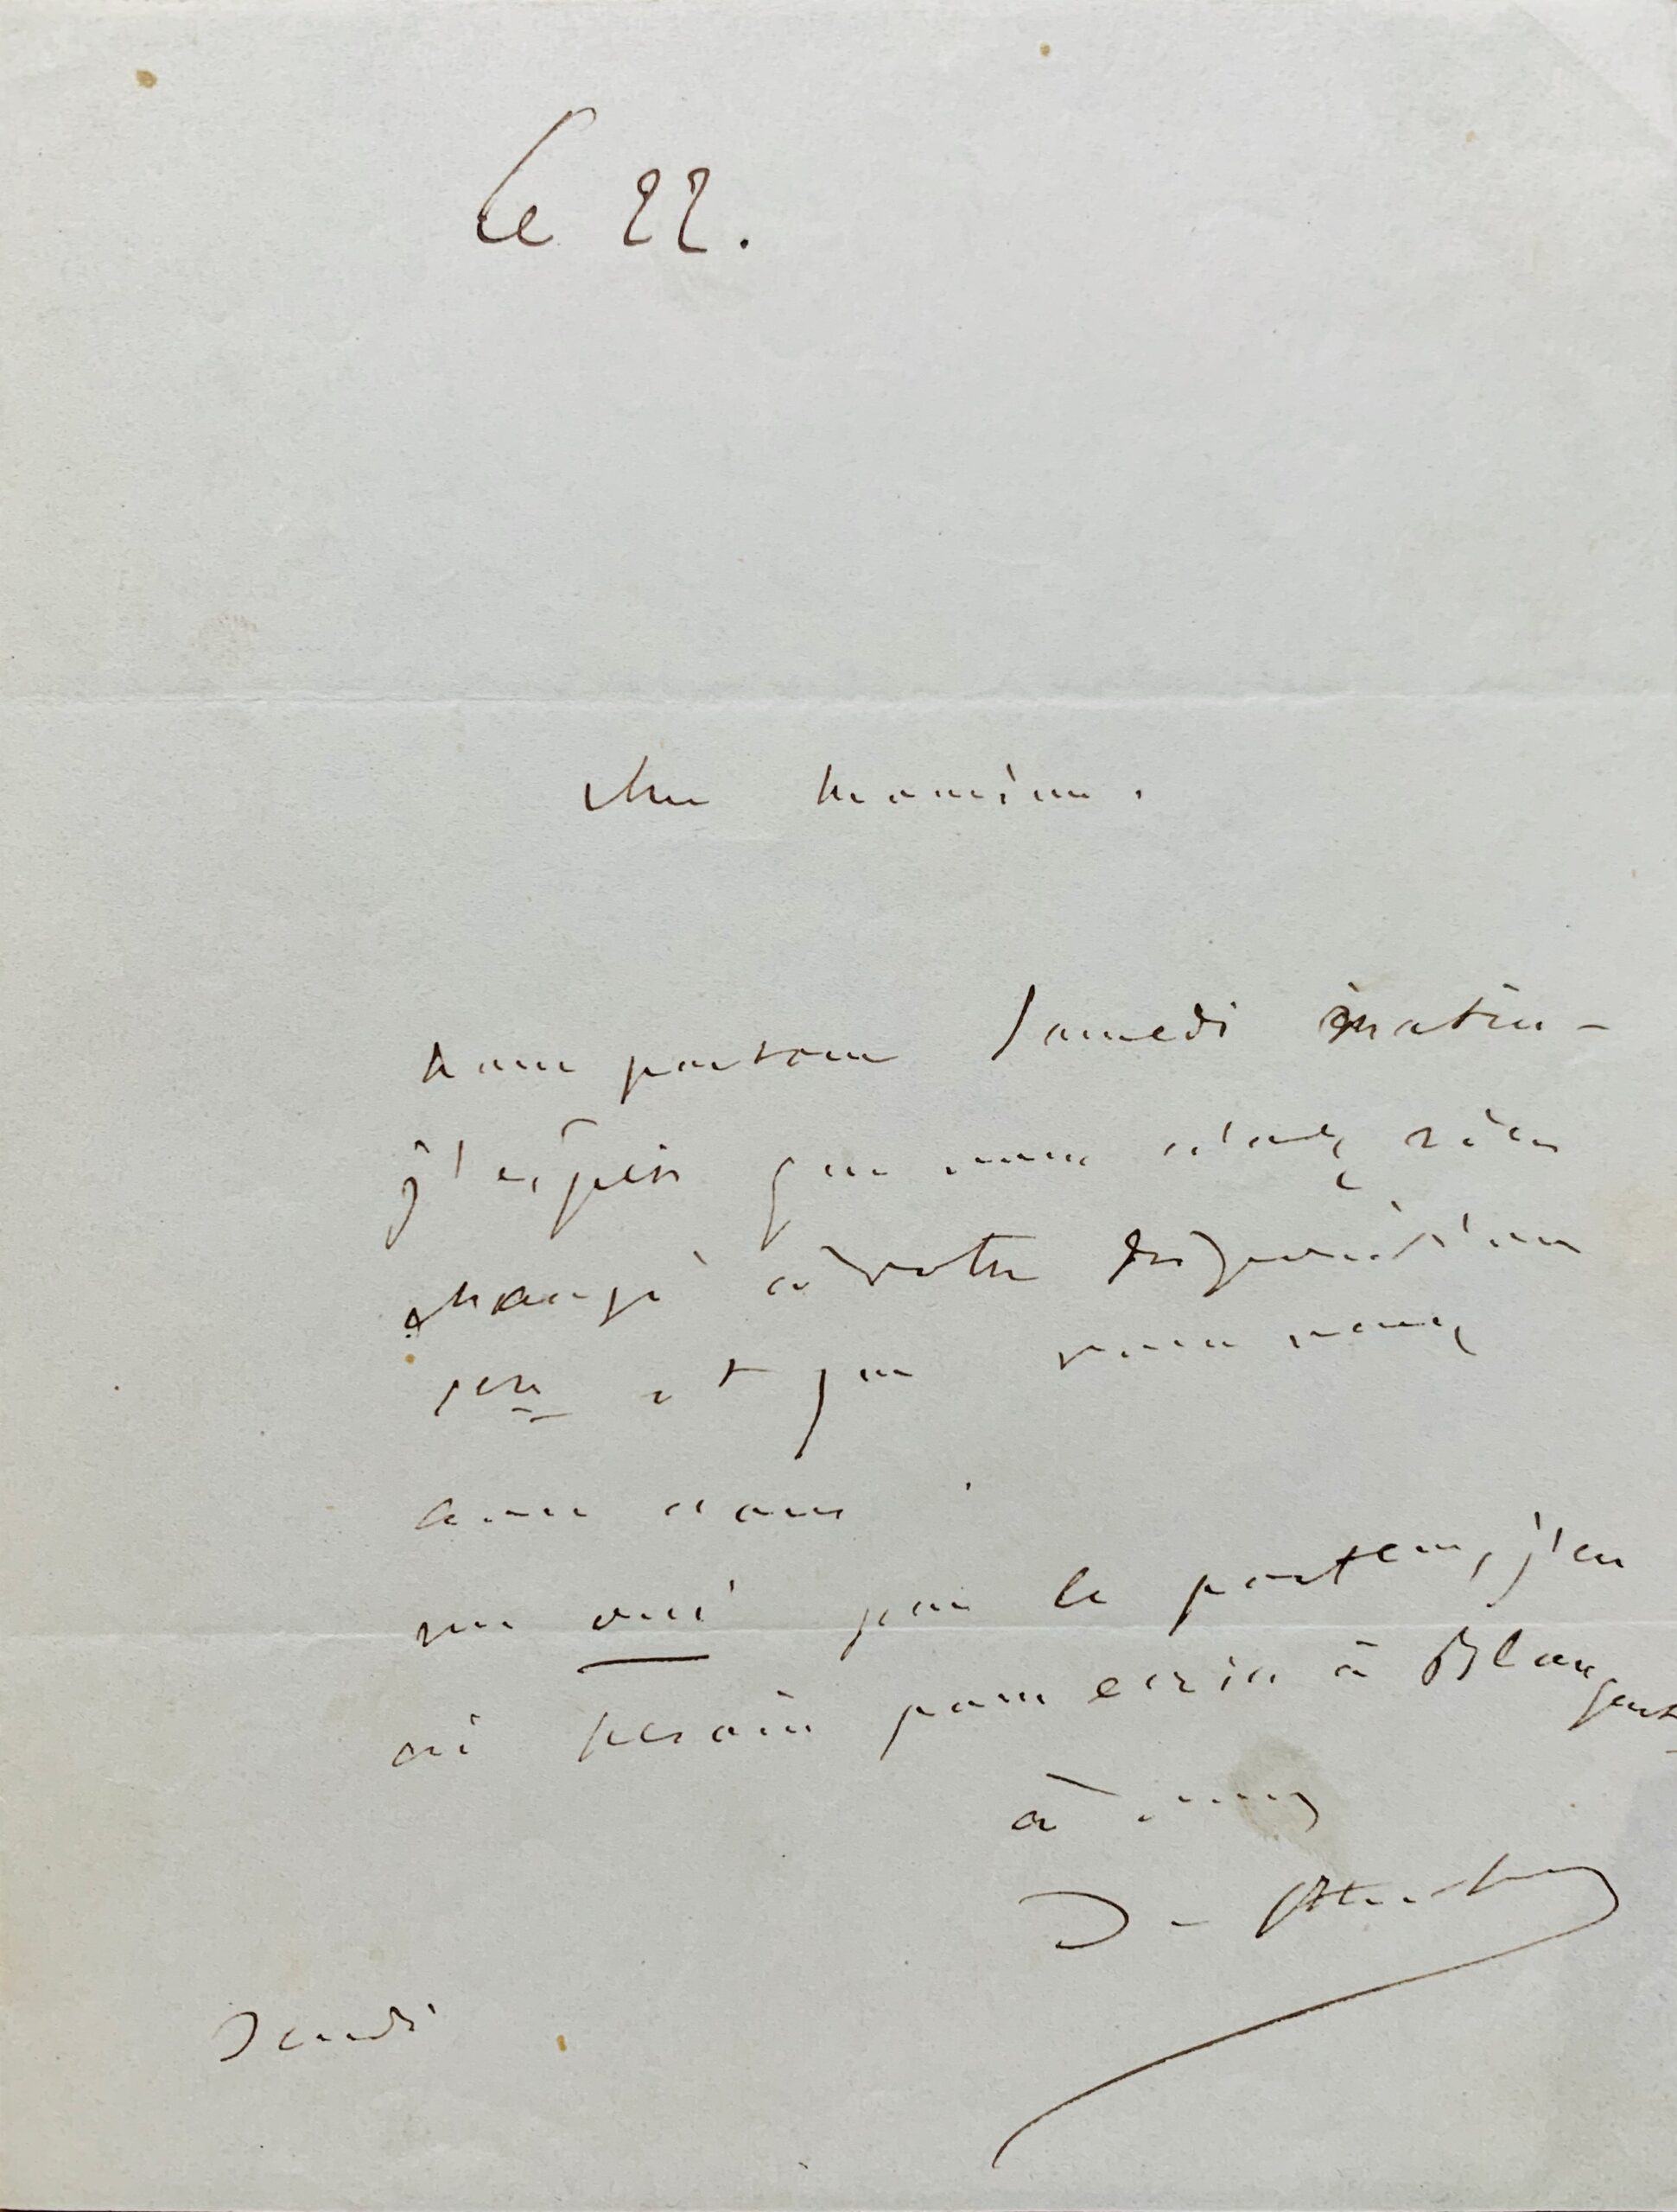 Le 22.
cher monsieur.
nous partons Samedi matin -
j'espere que vous n'avez rien
changé à votre disposition
et que vous venez
avec nous
un oui par le porteur, j'en
ai besoin pour ecrire à
à vous
Jeudi